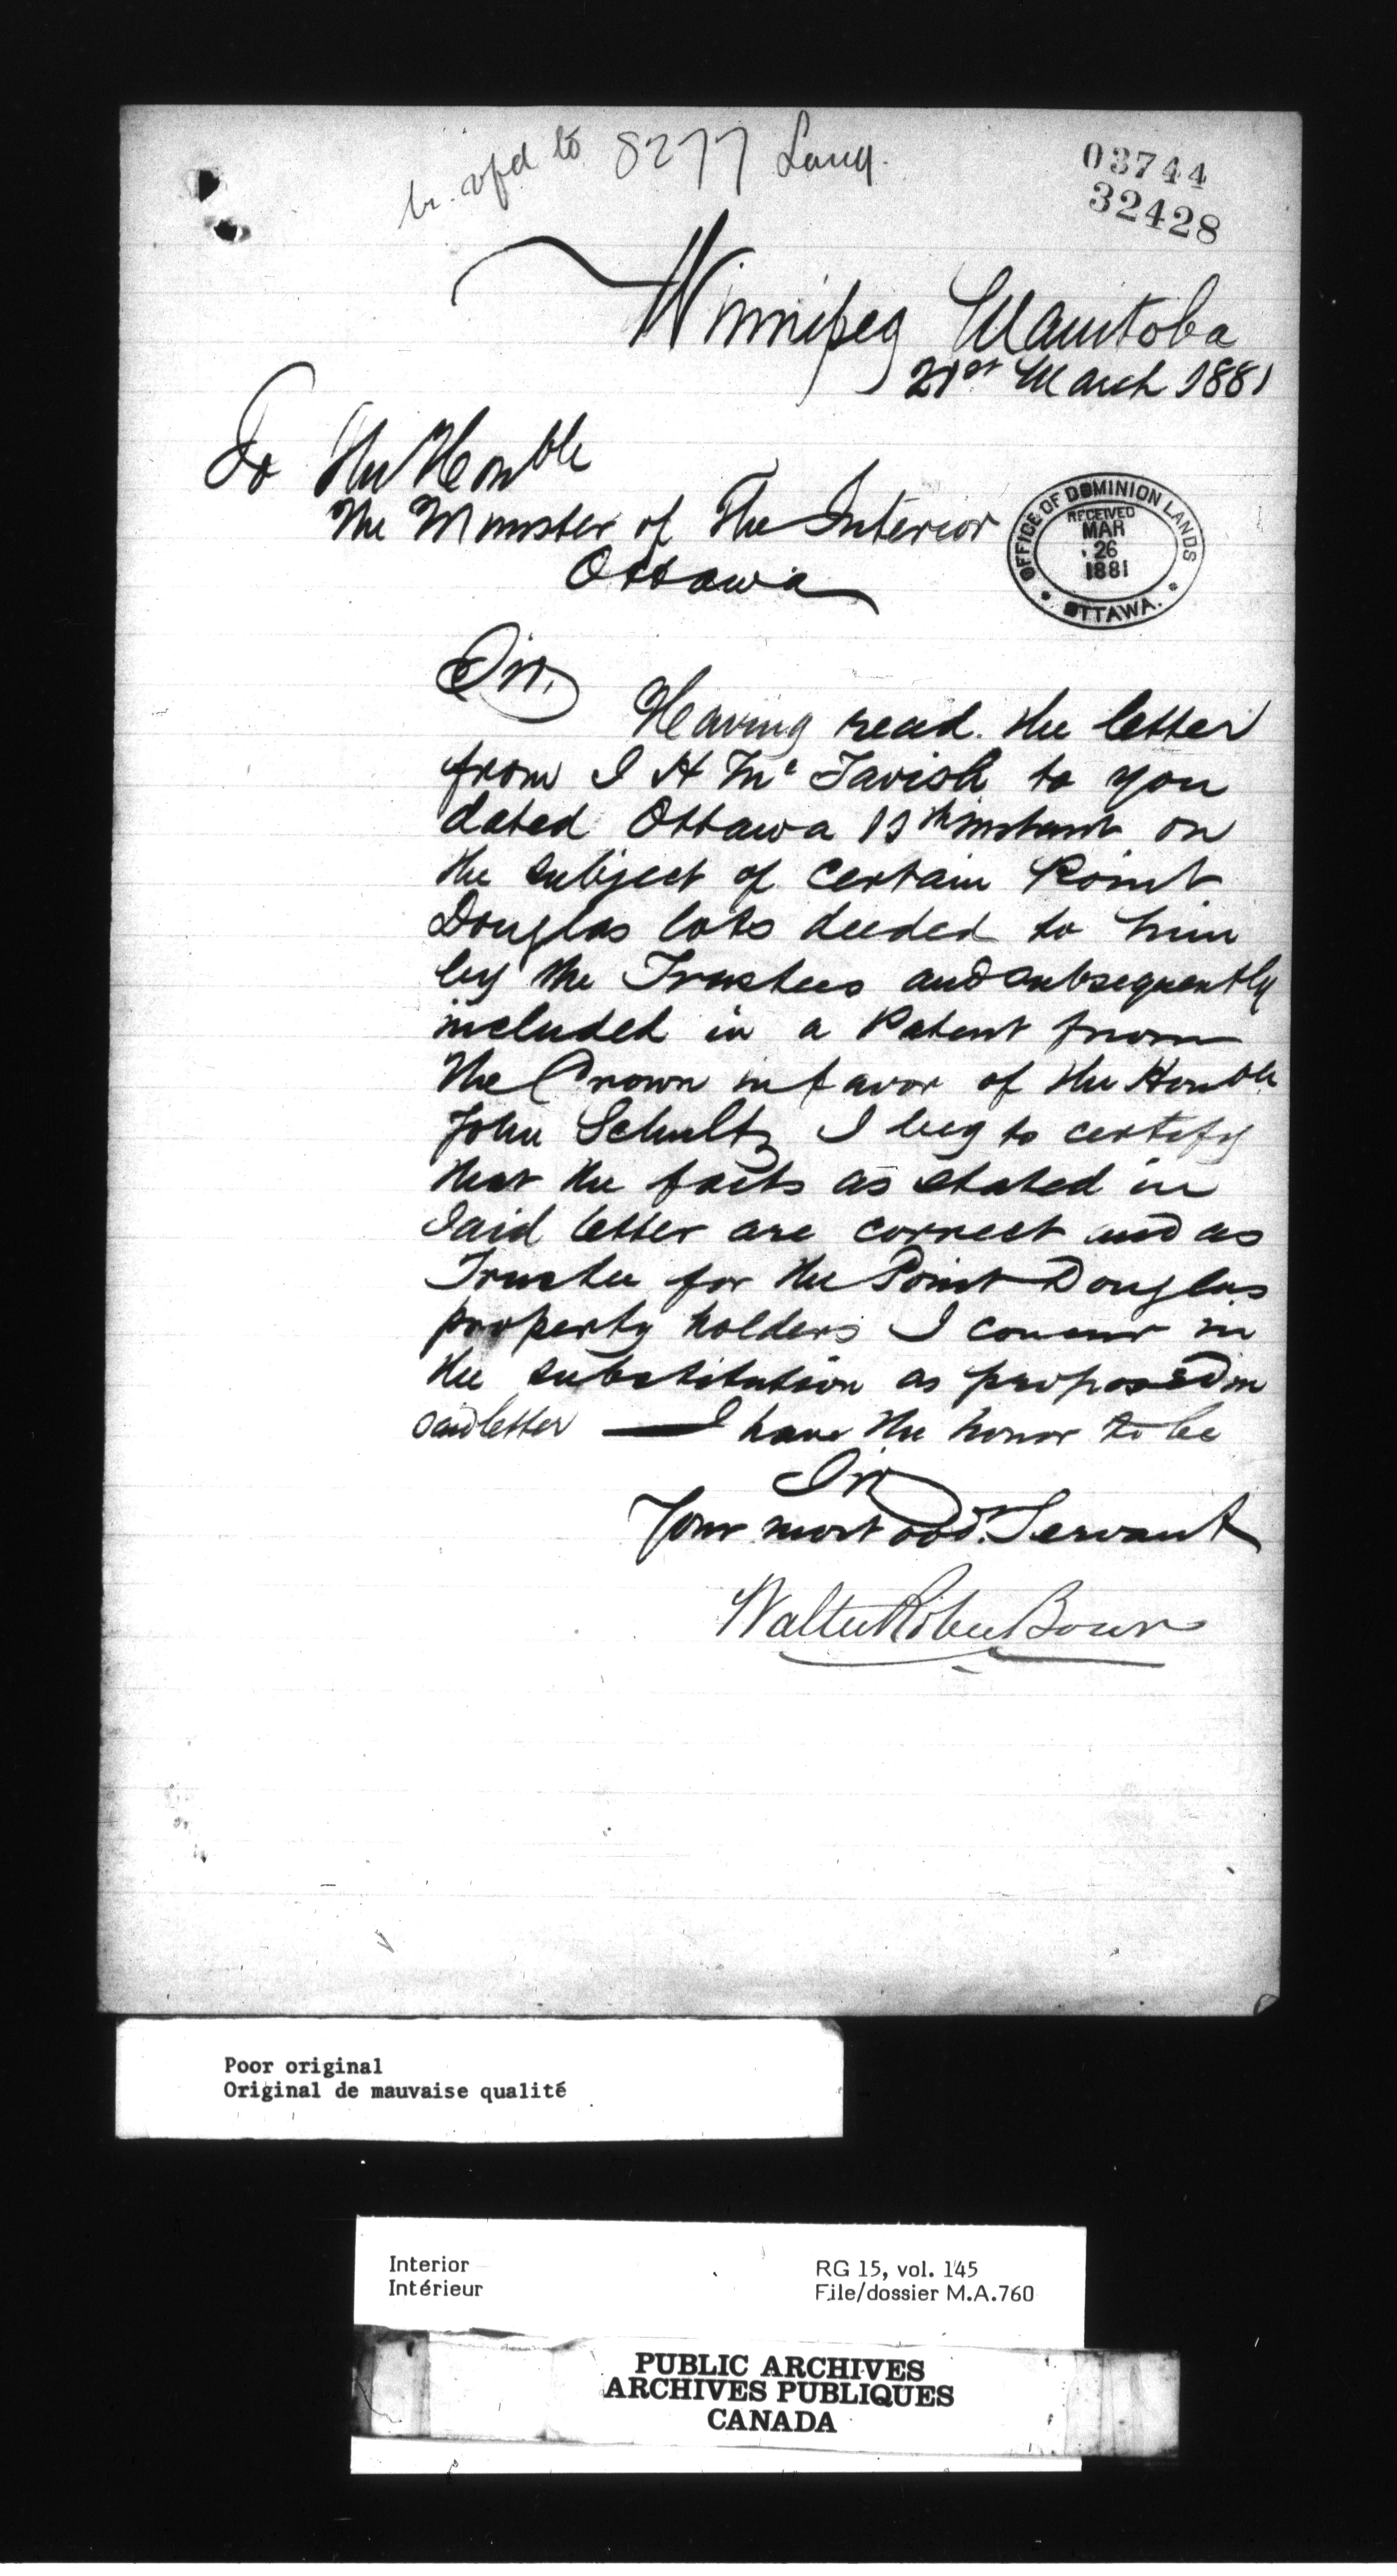 to 8277 Lang.
03744
32428
Winnipeg Manitoba
21st March 1881
To The Honble
The Minister of The Interior
Ottawa
OFFICE OF DOMINION LANDS
RECEIVED
MAR
26
1881
OTTAWA.
Sir,
Having read the letter
from J H Mc Tavish to you
dated Ottawa 15th instant on
the subject of certain Point
Douglas lots deeded to him
by the Trustees and subsequently
included in a Patent from
The Crown in favor of the Honble
John Schultz I beg to certify
that the facts as stated in
said letter are correct and as
Trustee for the Point Douglas
property holders I concur in
the substitution as proposed in
said letter — I have the honor to be
Sir
Your most obdt. Servant
Walter Robert Bown
Poor original
Original de mauvaise qualité
Interior
Intérieur
RG 15, vol. 145
File/dossier M.A.760
PUBLIC ARCHIVES
ARCHIVES PUBLIQUES
CANADA